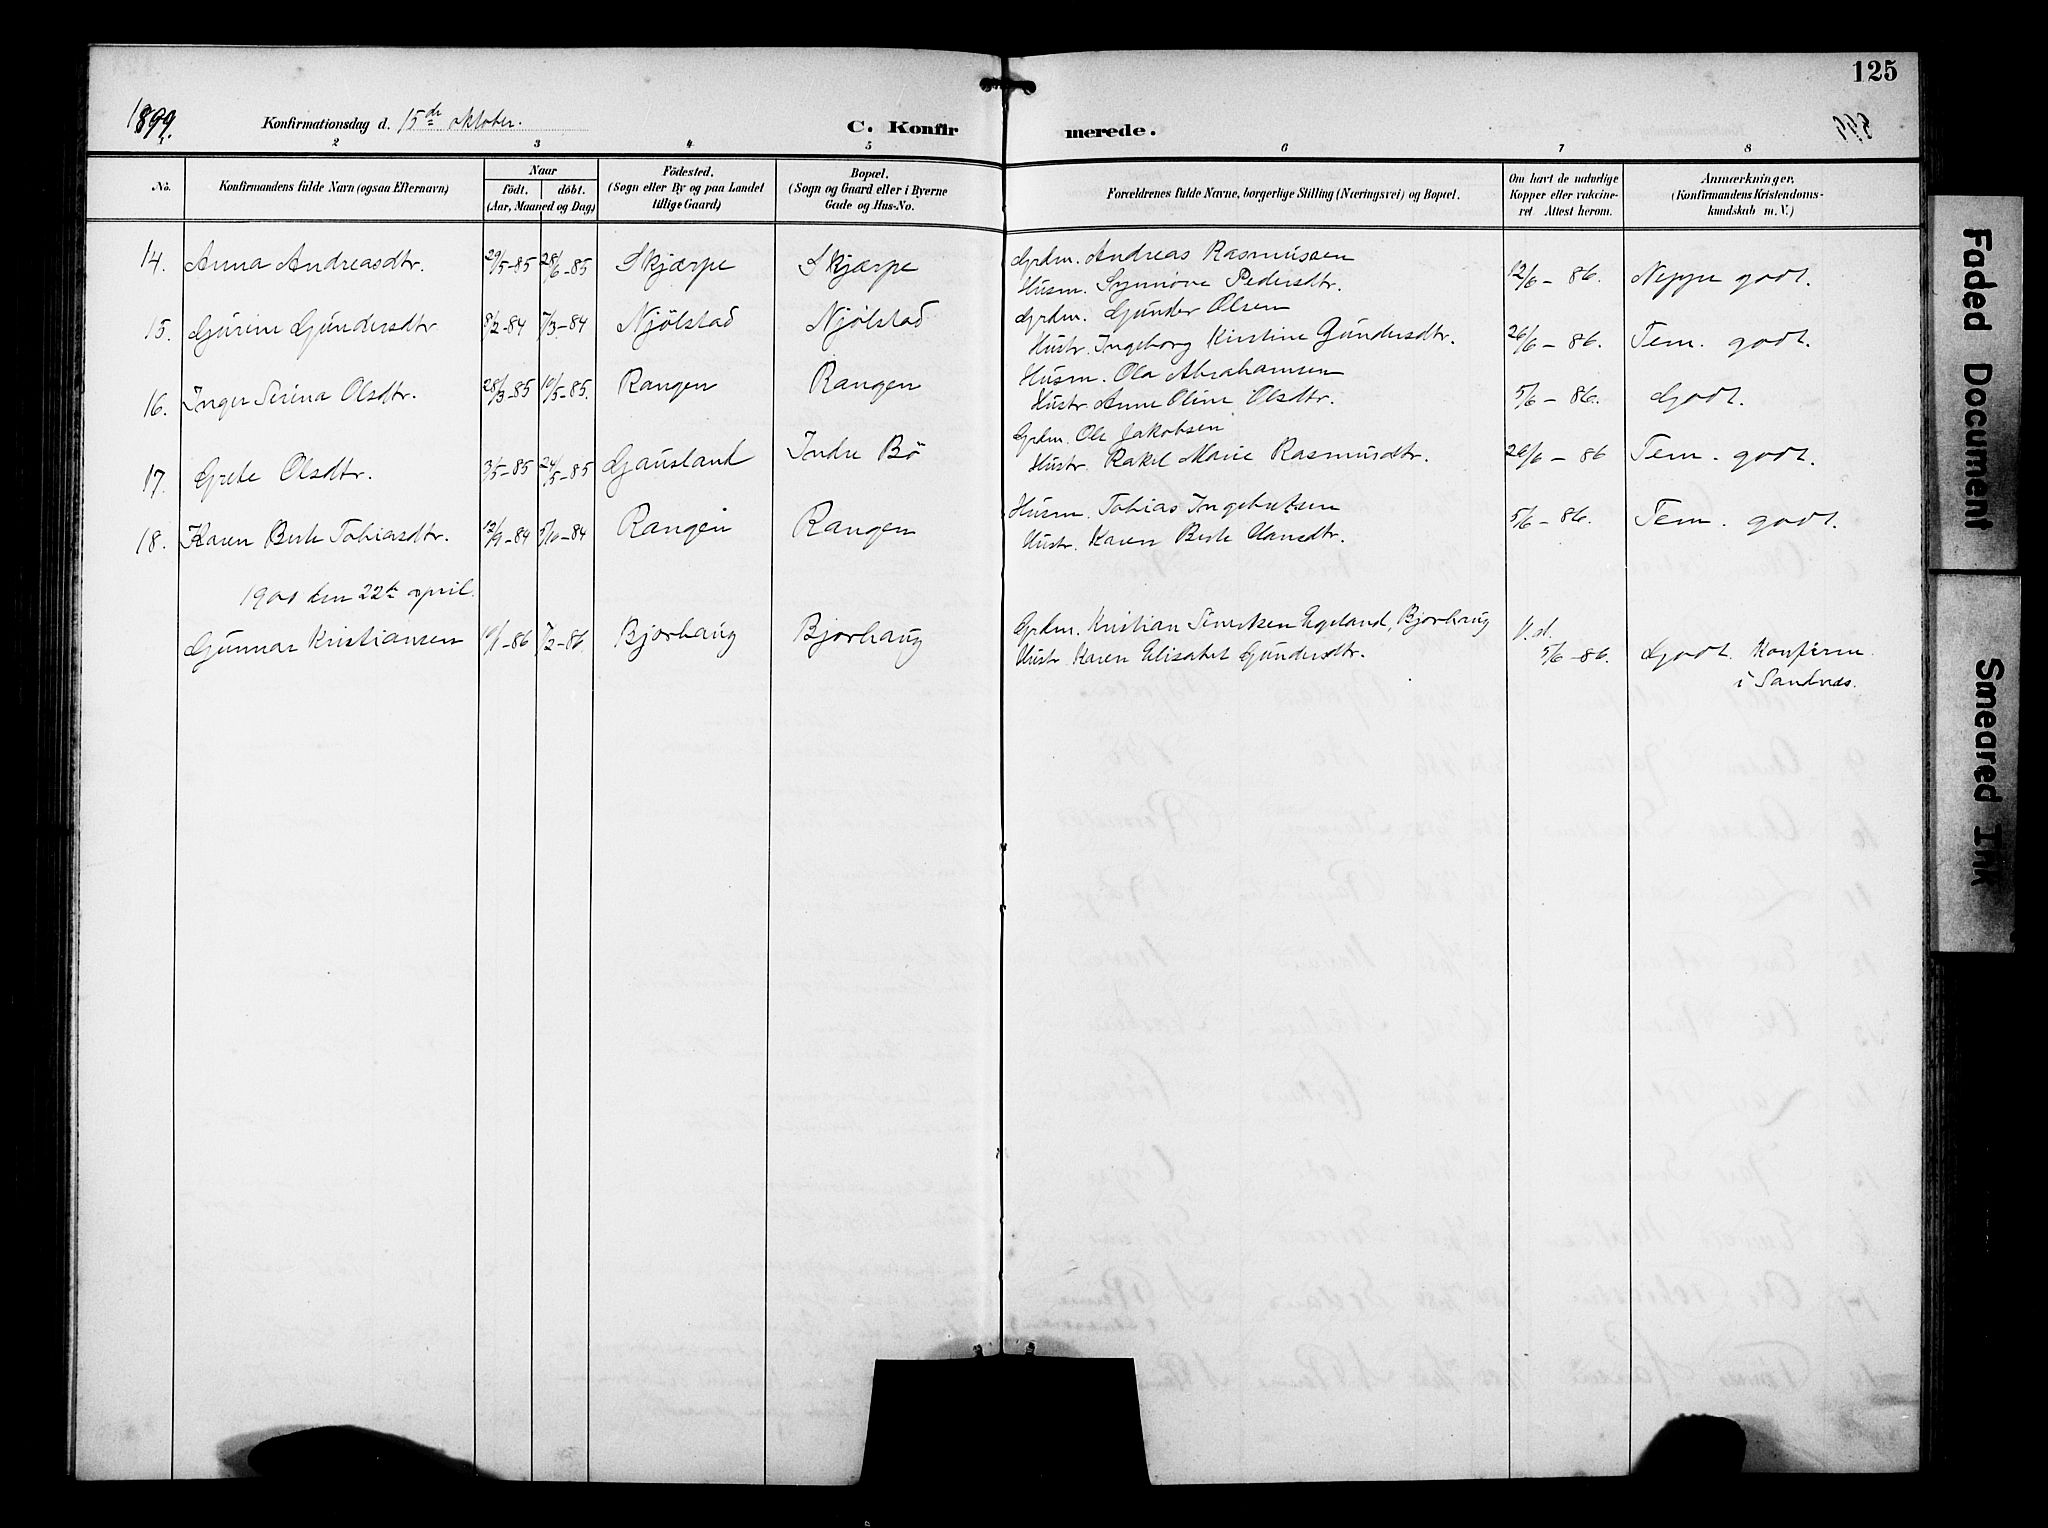 125
1899. Konfirmationsdag d. 15de oktober. C. Konfirmerede.
2 3 4 5 6 7 8
No. Konfirmandens fulde Navn (ogsaa Efternavn) Naar födt. döbt. (Aar, Maaned og Dag) Födested. (Sogn eller By og paa Landet tillige Gaard) Bopæl. (Sogn og Gaard eller i Byerne Gade og Hus-No. Forældrenes fulde Navne, borgerlige Stilling (Næringsvei) og Bopæl. Om havt de naturlige Kopper eller vaccineret Attest herom. Anmærkninger. (Konfirmandens Kristendomskundskab m. V.)
14. Anna Andreasdtr. 29/5-85 28/6-85 Skjærpe Skjærpe Grdm. Andreas Rasmussen
Husm. Synnöve Pedersdtr. 12/6 - 86. Neppe godt.
15. Gurine Gundersdtr 8/2-84 7/3-84 Njölstad Njölstad Grdm. Gunder Olsen
Hustr. Ingeborg Kirstine Gundersdtr. 26/6 - 86. Tem. godt.
16. Inger Serina Olsdtr. 28/3-85 10/5-85. Rangen Rangen Husm. Ola Abrahamsen
Hustr. Anne Oline Olsdtr. 5/6 - 86. Godt.
17. Grete Olsdtr. 3/5-85 24/5-85 Gausland Indre Bö Grdm. Ole Jakobsen
Hustr. Rakel Marie Rasmusdtr. 26/6 - 86 Tem. godt.
18. Karen Berte Tobiasdtr. 12/9-84 5/10-84 Rangen Rangen Husm. Tobias Ingebretsen
Hustr. Karen Berte Hansdtr. 5/6 - 86. Tem. godt.
den 22de april.
Gunnar Kristiansen 10/1-86 7/2-86. Bjorhaug Bjorhaug Grdm. Kristian Egeland, Bjorhaug
Hustr. Karen Elisabet Gundersdtr. 5/6 - 86. Godt. Konfirm.
i Sandnæs.
Faded Document
Smeared Ink